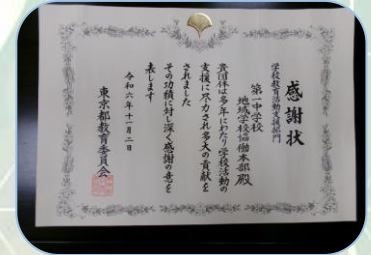 感謝状
学校教育活動支援部門
第一中学校
地域学校協働本部殿
貴団体は多年にわたり学校活動の
支援に尽力され多大の貢献を
されました
その功績に対し深く感謝の意を
表します
令和六年十一月二日
東京都教育委員会